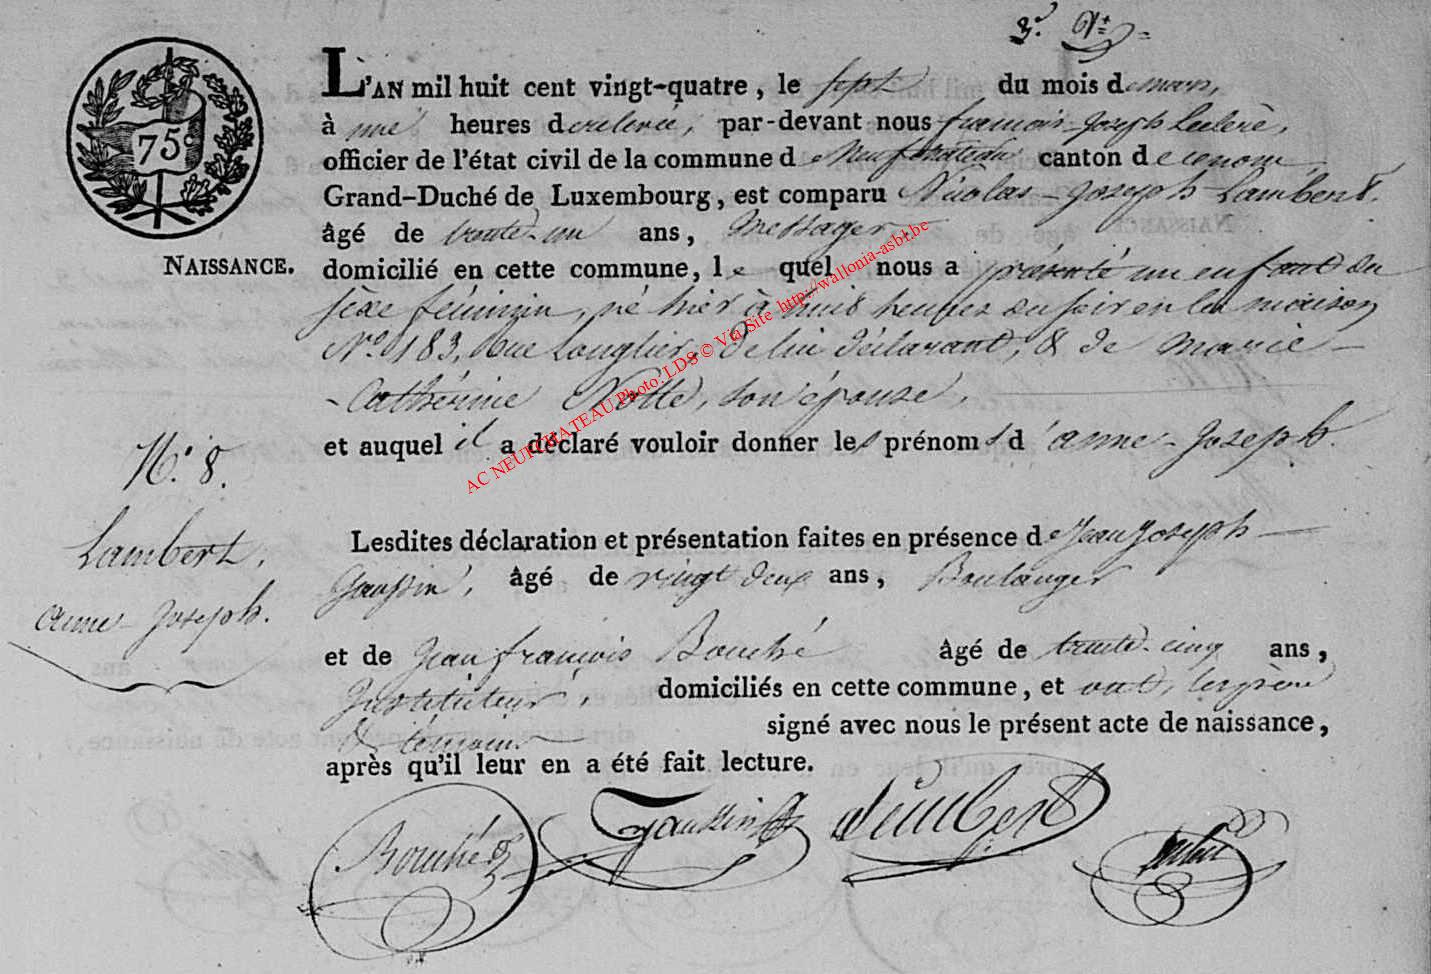 75c
L'AN mil huit cent vingt-quatre, le sept du mois de mars,
à une heures de relevée, par-devant nous françois-Joseph Leclerc,
officier de l'état civil de la commune de Neufchâteau canton de ce nom
Grand-Duché de Luxembourg, est comparu Nicolas-Joseph Lambert,
âgé de trente-un ans, Messager,
NAISSANCE. domicilié en cette commune, le quel nous a présenté un enfant du
sèxe féminin, né hier à huit heures du soir en la maison
No. 183, rue Longlier, de lui déclarant, & de Marie-
-Cathérine Notte, son épouse,
et auquel il a déclaré vouloir donner les prénoms d'anne-Joseph.
N.° 8.
Lambert,
anne-Joseph.
Lesdites déclaration et présentation faites en présence de Jean Joseph
Gaussin, âgé de vingt deux ans, Boulanger
et de Jean françois Bouché âgé de trente-cinq ans,
Instituteur, domiciliés en cette commune, et ont, les père
& témoins signé avec nous le présent acte de naissance,
après qu'il leur en a été fait lecture.
Bouché Gaussin Lambert
AC NEUFCHATEAU Photo: LDS © Via Site http://wallonia-asbl.be